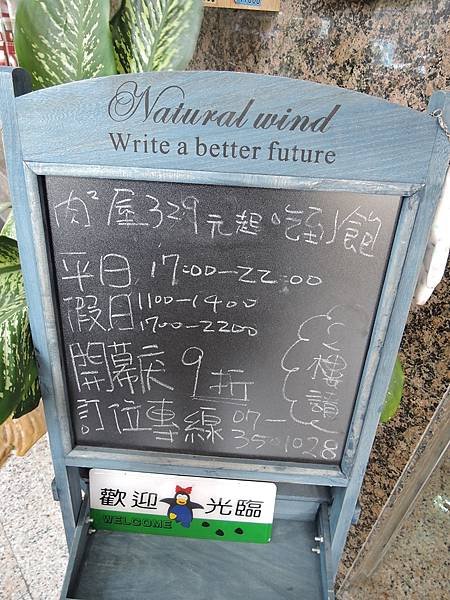 Natural wind
Write a better future
肉²屋329元起吃到飽
平日 17:00-22:00
假日 1100-1400
1700-2200
開幕庆9折
2樓讀
訂位專線 07-
3501028
歡迎 光臨
WELCOME